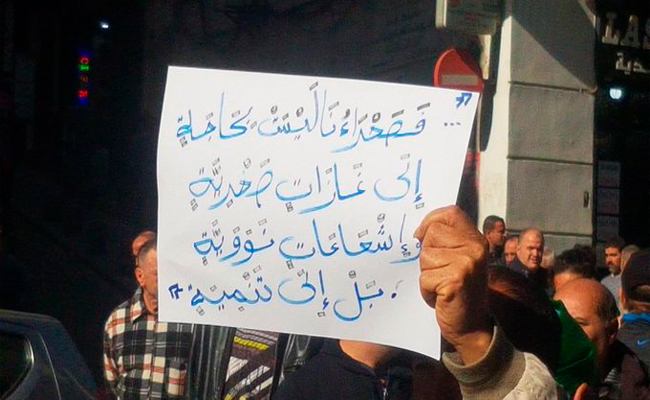 ... فَصَحْرَاءُنَا لَيْسَتْ بِحَاجَةٍ
إِلَى غَازَاتٍ صَخْرِيَّةٍ
وَإِشْعَاعَاتٍ نَوَوِيَّةٍ
بَلْ إِلَى تَنْمِيَةٍ.
LAS
دية